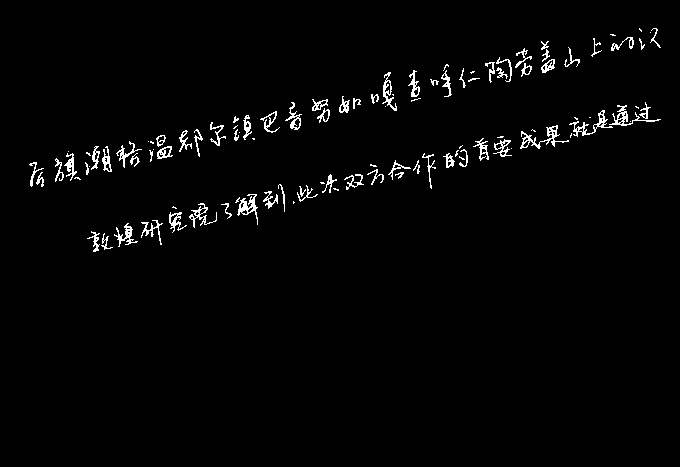 后旗潮格温都尔镇巴音努如嘎查呼仁陶劳盖山上的汉
敦煌研究院了解到,此次双方合作的首要成果就是通过